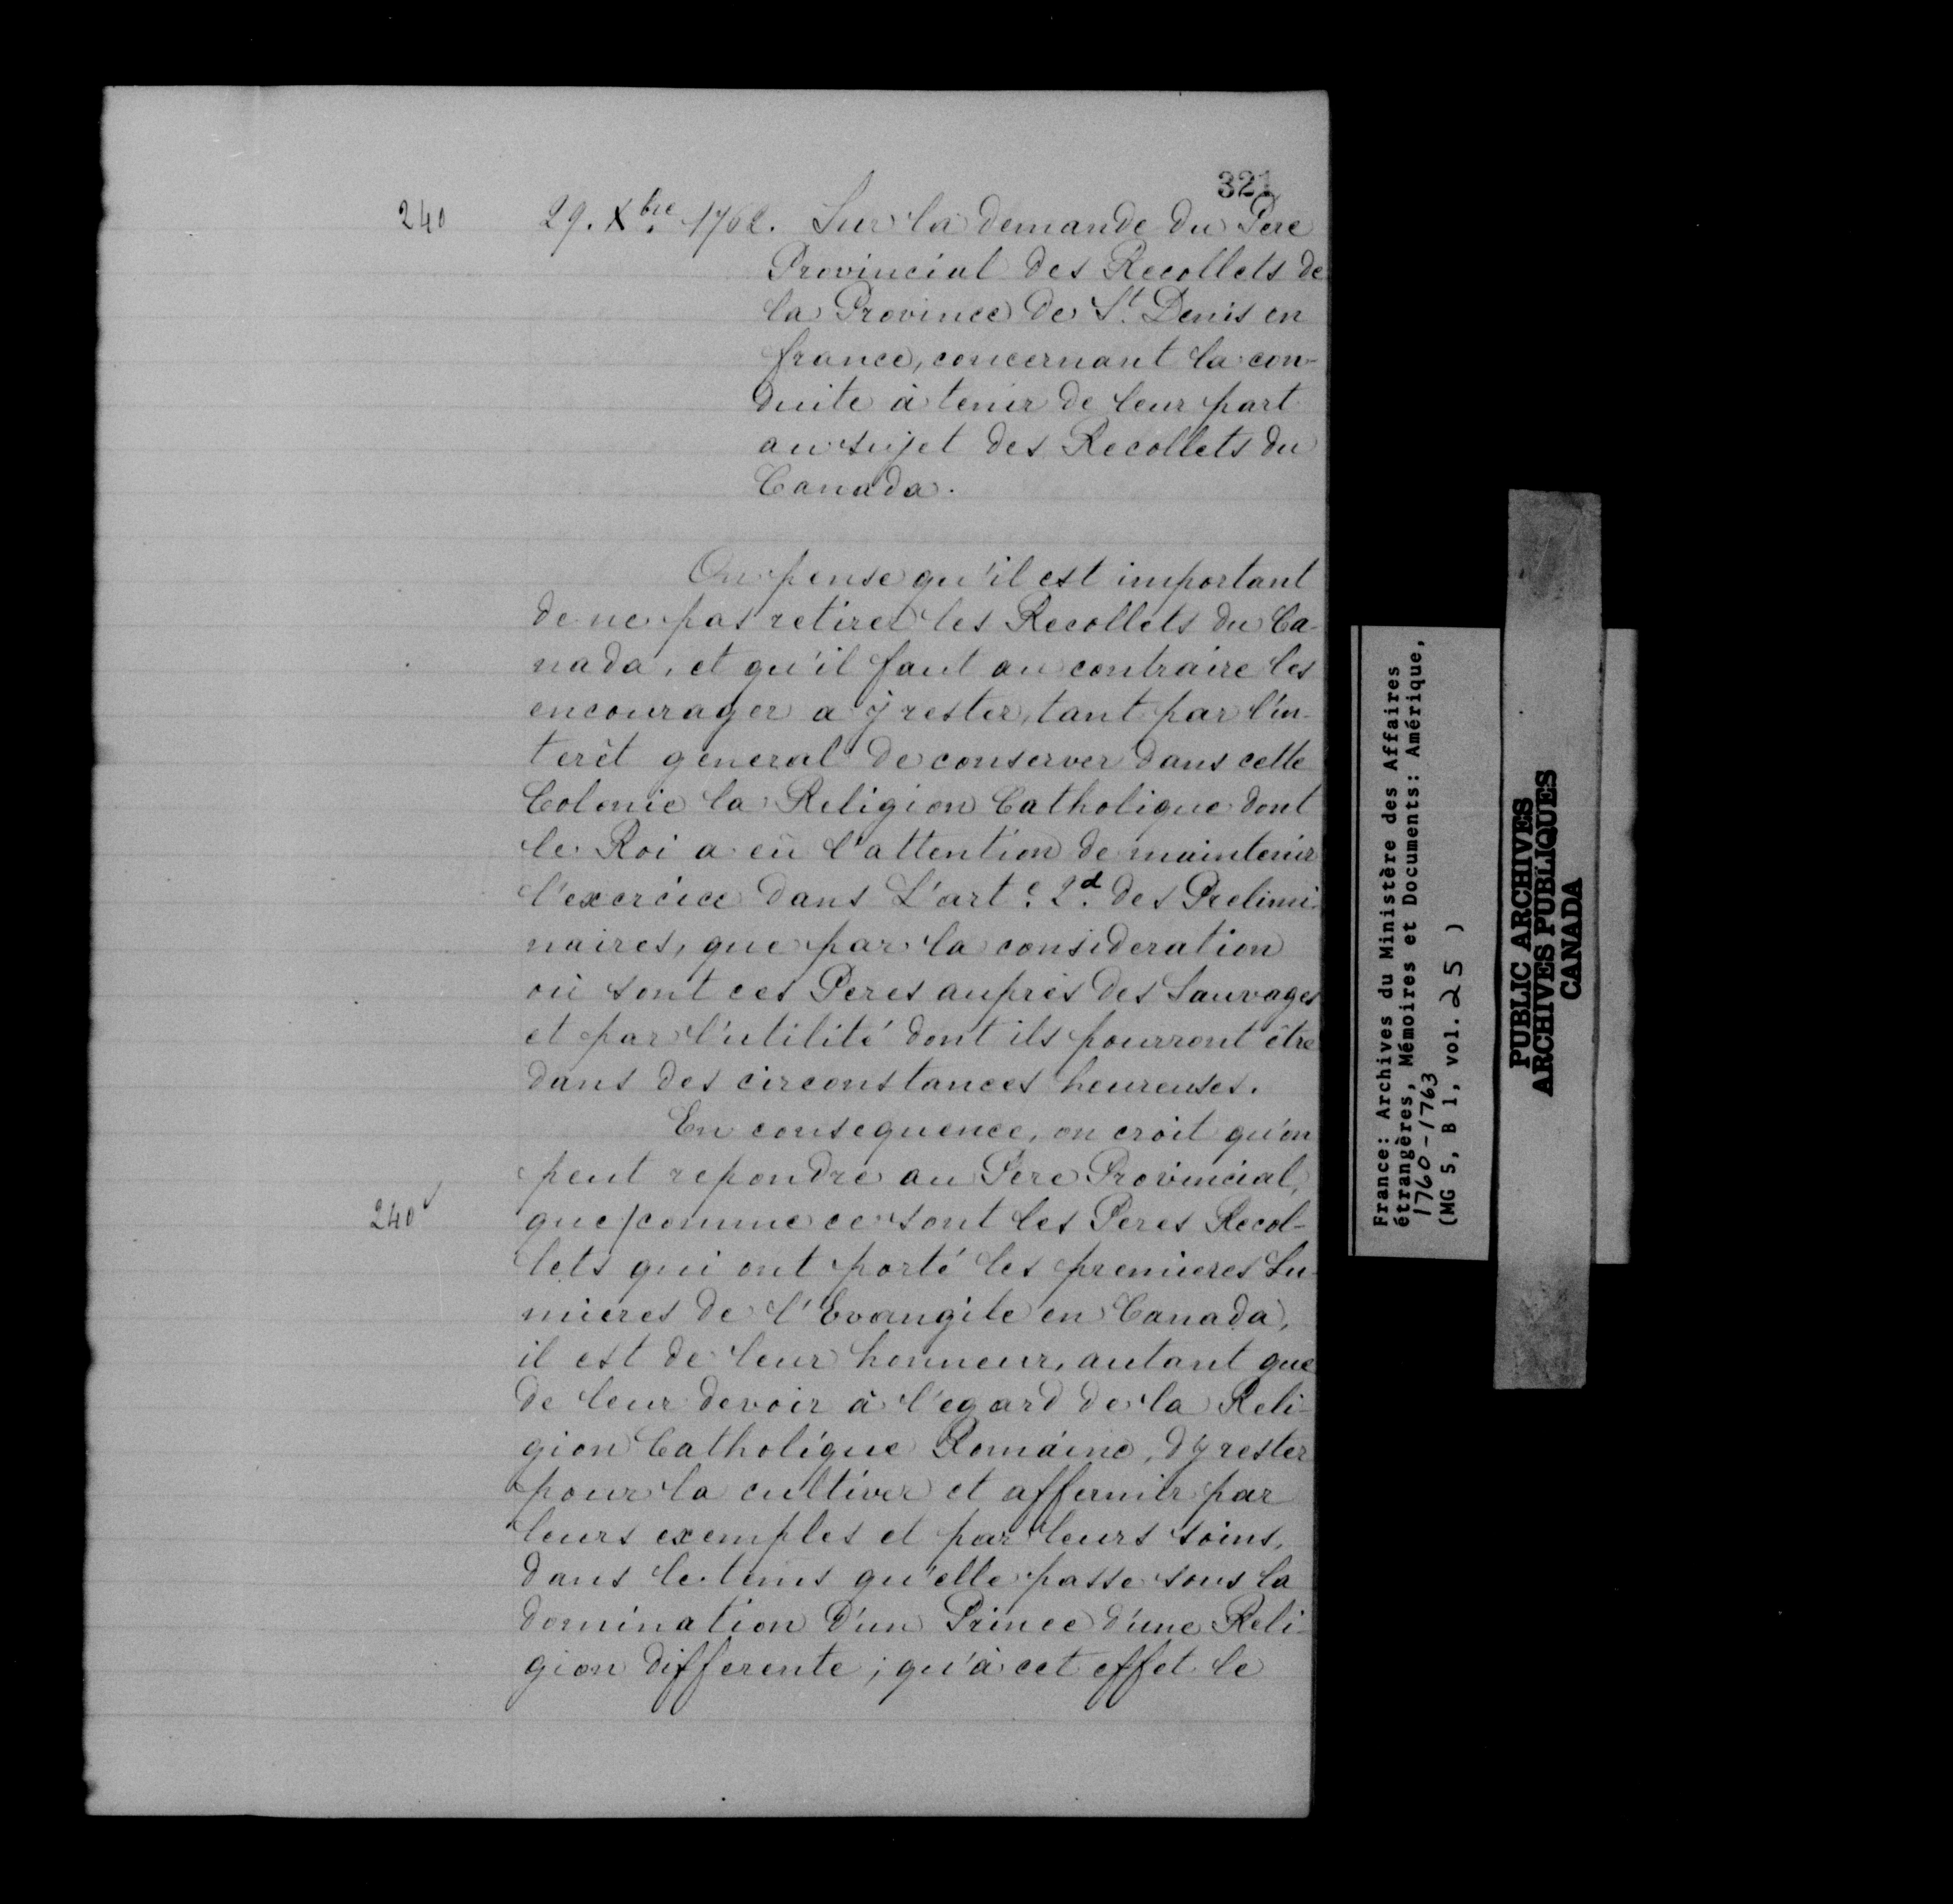 321
240
29. Xbre. 1762. Sur la demande du Pere
Provincial des Recollets de
la Province de St. Denis en
france, concernant la con-
duite à tenir de leur part
au sujet des Recollets du
Canada.
On pense qu'il est important
de ne pas retirer les Recollets du Ca-
nada, et qu'il faut au contraire les
encourager a ÿ rester, tant par l'in-
terêt general de conserver dans cette
Colonie la Religion Catholique dont
le Roi a eû l'attention de maintenir
l'exercice dans L'art.e 2.d des Prelimi-
naires, que par la consideration
où sont ces Peres auprès des Sauvages
et par l'utilité dont ils pourront être
dans des circonstances heureuses.
En consequence, on croit qu'on
peut repondre au Pere Provincial,
240v
que / comme ce sont les Peres Recol-
lets qui ont porté les premieres Lu-
mieres de l'Evangile en Canada,
il est de leur honneur, autant que
de leur devoir à l'egard de la Reli-
gion Catholique Romaine, d'y rester
pour la cultiver et affermir par
leurs exemples et par leurs soins,
dans le tems qu'elle passe sous la
domination d'un Prince d'une Reli-
gion differente ; qu'à cet effet le
France: Archives du Ministère des Affaires
étrangères, Mémoires et Documents: Amérique,
1760-1763
(MG 5, B 1, vol. 25 )
PUBLIC ARCHIVES
ARCHIVES PUBLIQUES
CANADA